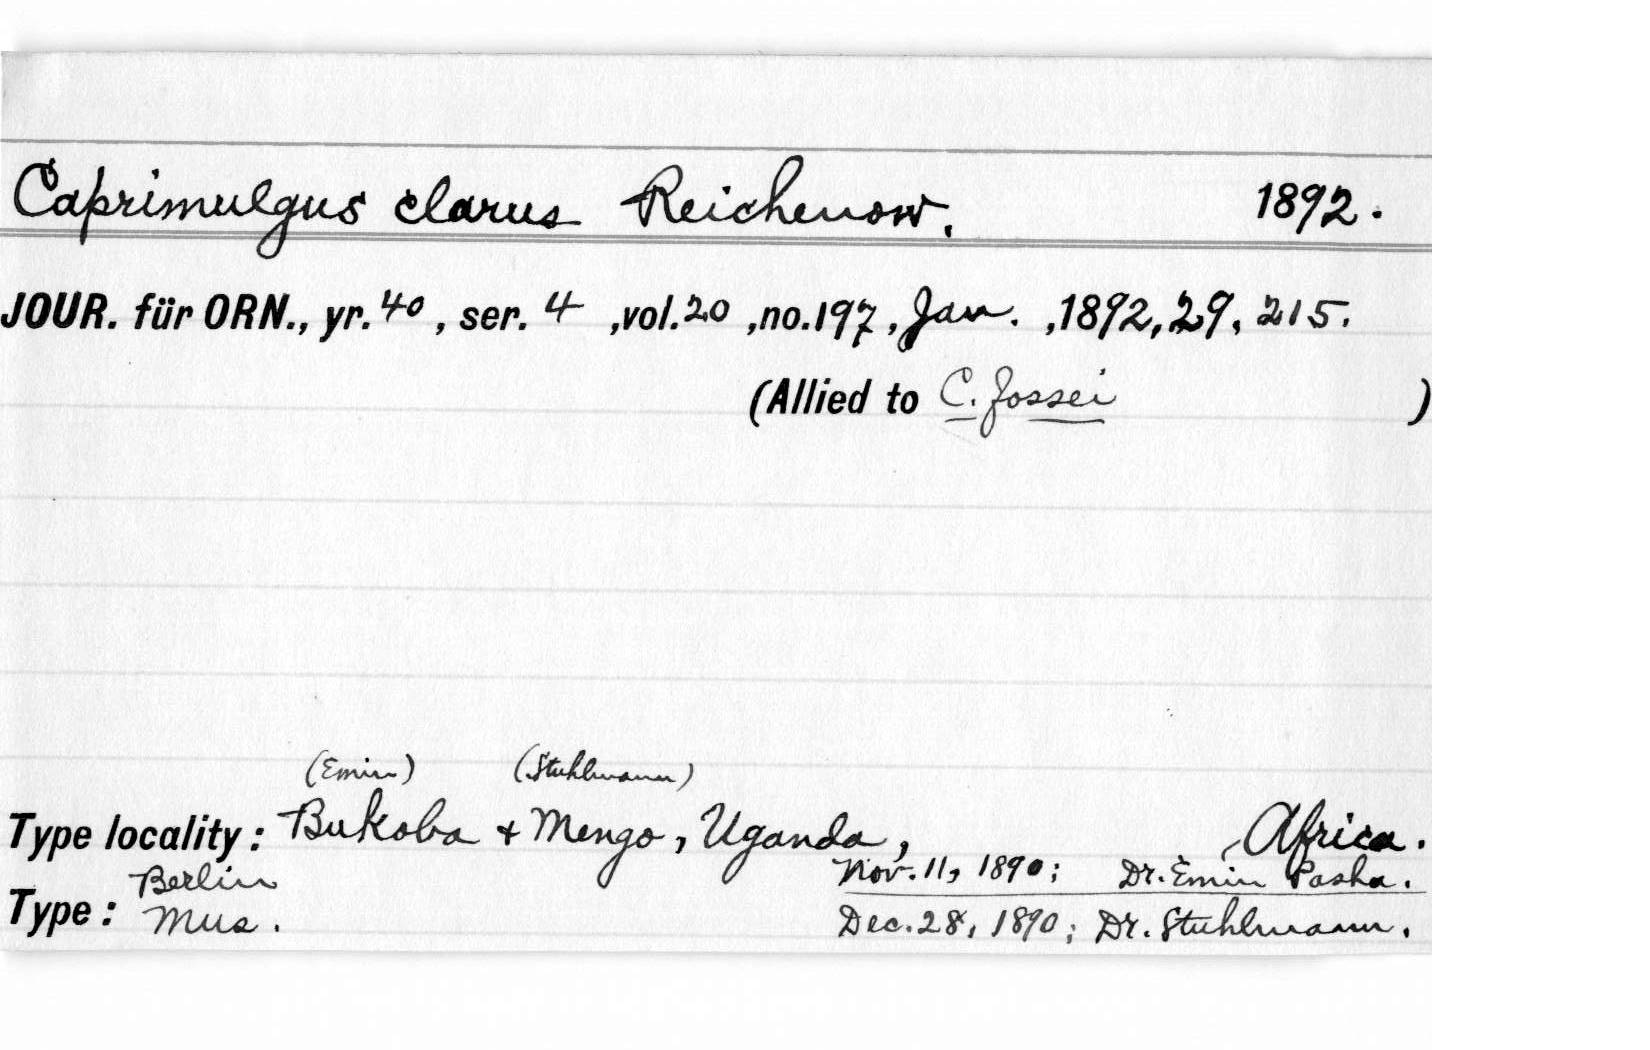 Caprimulgus clarus Reichenow. 1892.
JOUR. für ORN., yr. 40, ser. 4, vol. 20, no. 197, Jan., 1892, 29, 215.
(Allied to C. fossei)
(Emin) (Stuhlmann)
Type locality: Bukoba + Mengo, Uganda, Africa.
Nov. 11, 1890; Dr. Emin Pasha.
Type: Berlin Mus. Dec. 28, 1890; Dr. Stuhlmann.